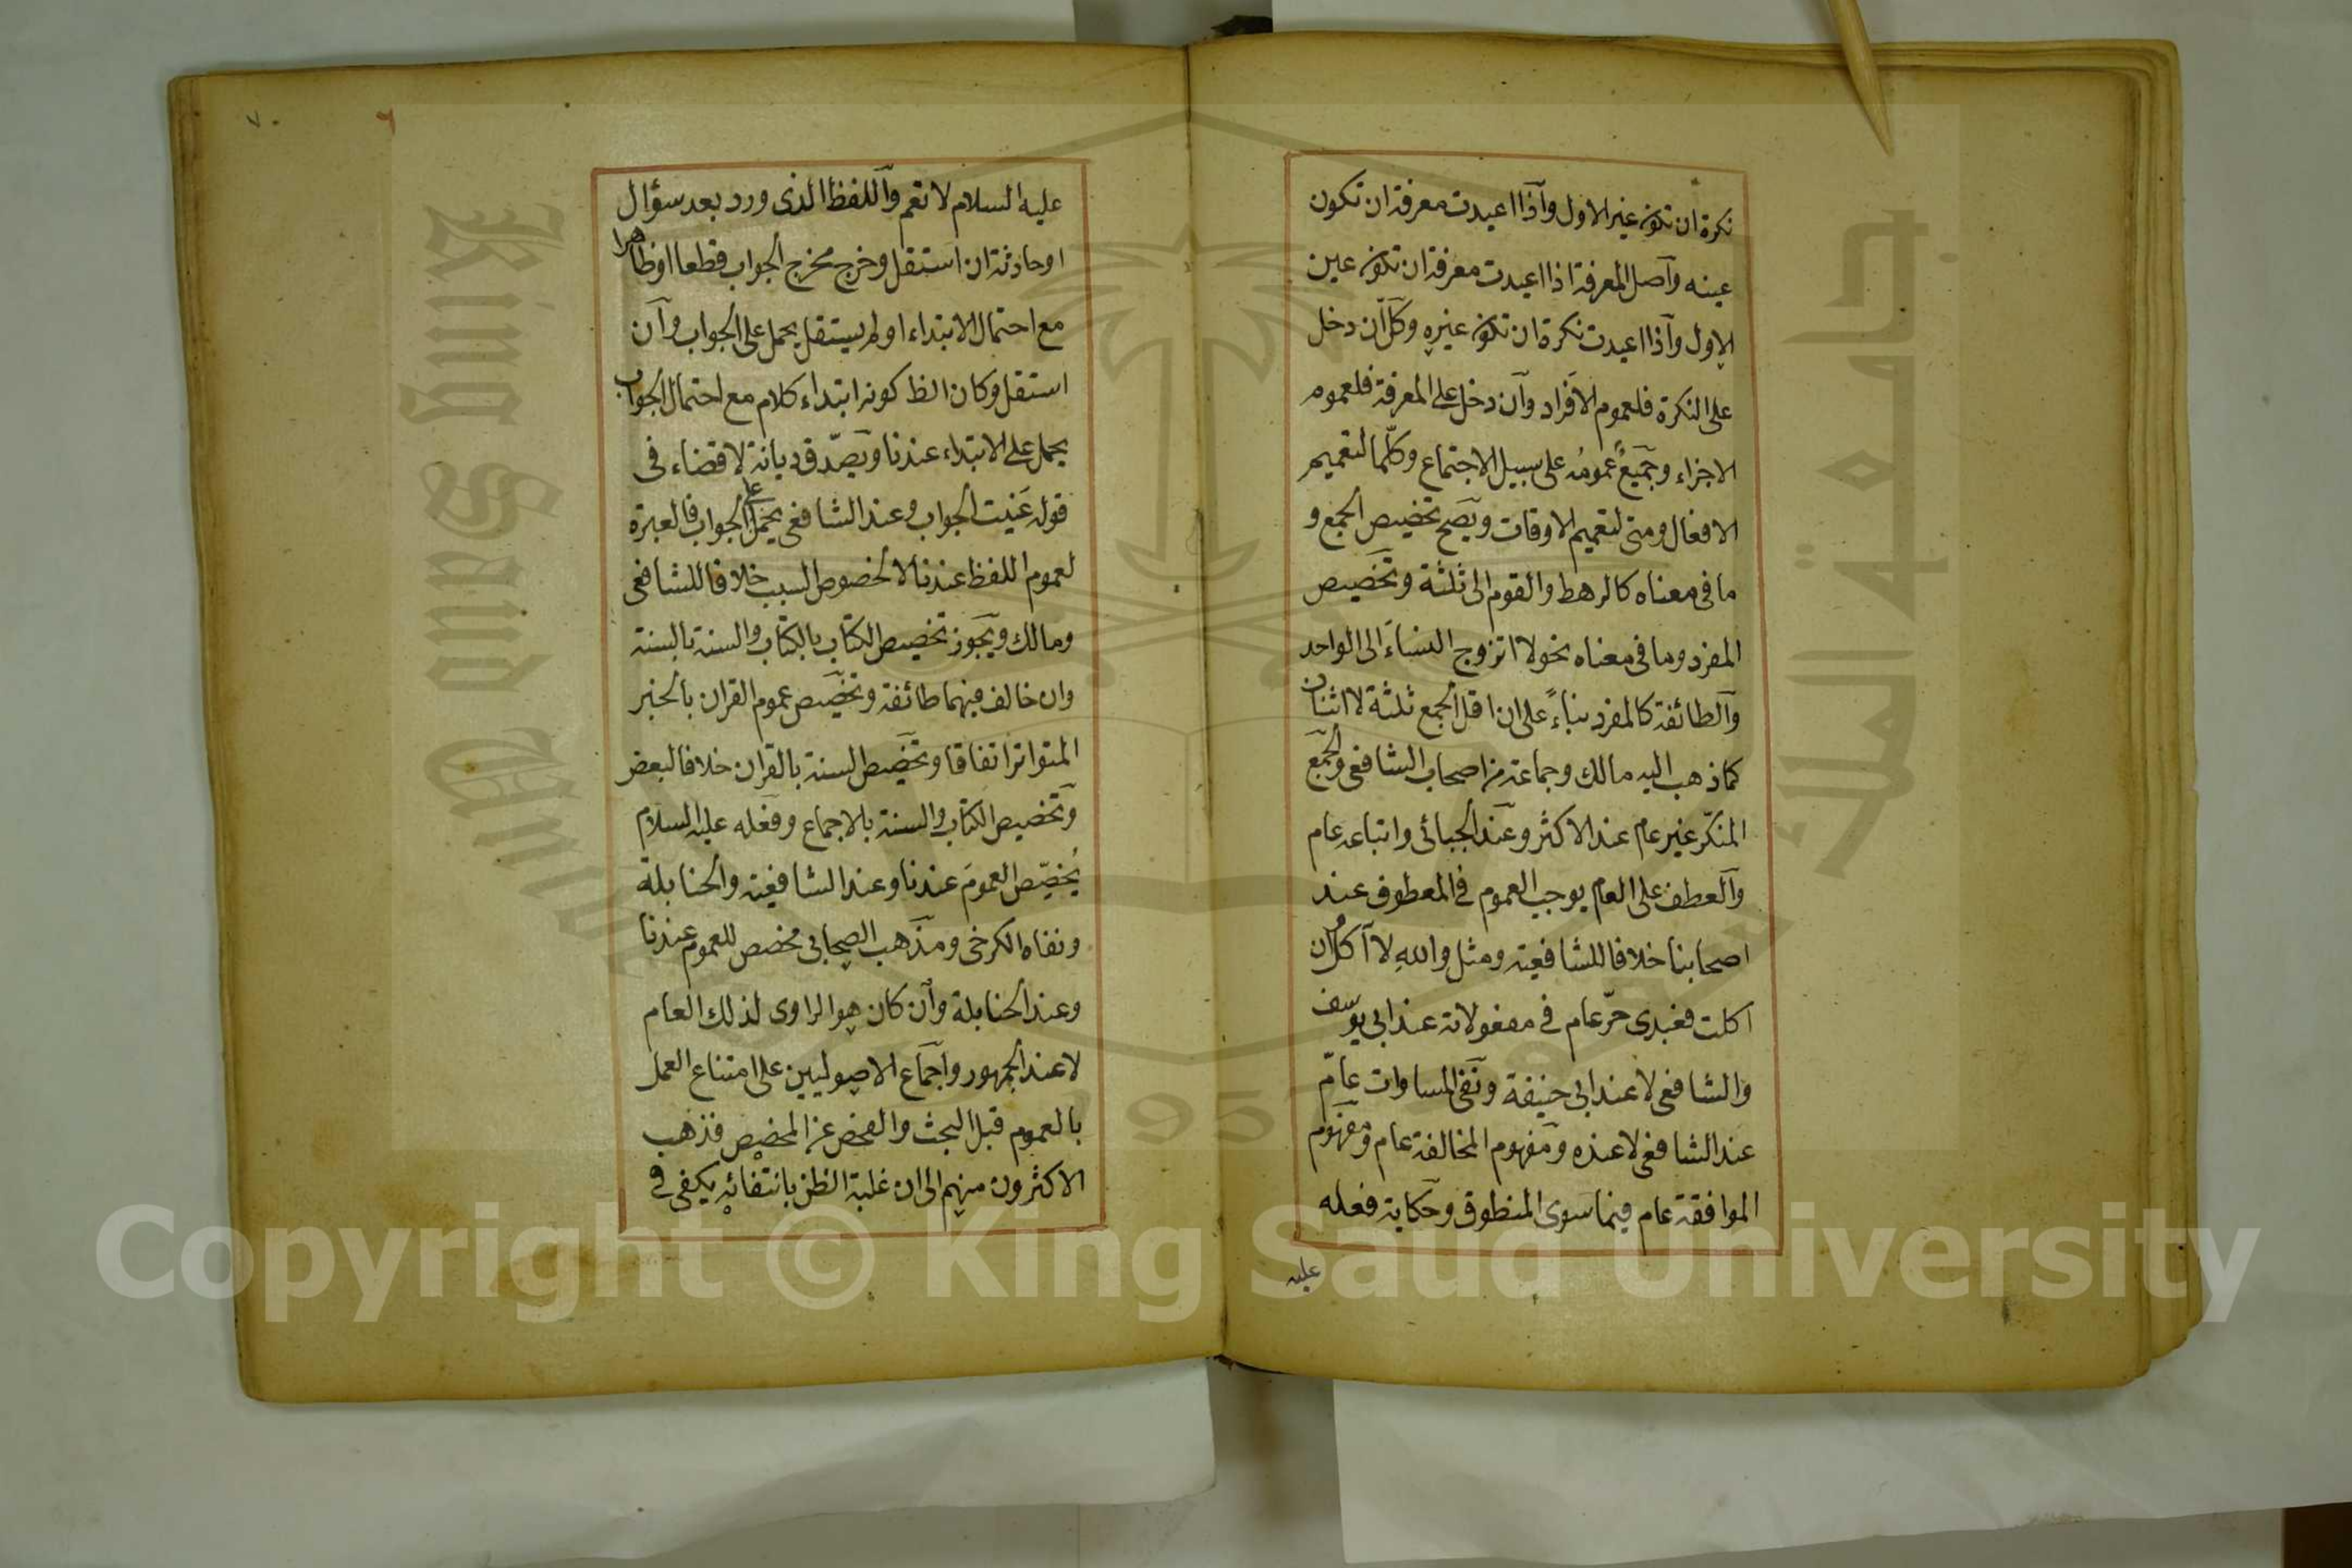 نكرة ان تكون غير الاول وآذا اعيدت معرفة ان تكون
عينه وآصل المعرفة اذا اعيدت معرفة ان تكون عين
الاول وآذا اعيدت نكرة ان تكون غيره وكل آن دخل
على النكرة فلعموم الافراد وآن دخل على المعرفة فلعموم
الاجزاء وجميع عمومه على سبيل الاجتماع وكلّما لتعميم
الافعال ومتى لتعميم الاوقات ويصح تخصيص الجمع و
ما فى معناه كالرهط والقوم الى ثلثة وتخصيص
المفرد وما فى معناه نحو لا اتزوج النساء الى الواحد
وآلطائفة كالمفرد بناءً على ان اقل الجمع ثلثة لا اثنان
كما ذهب اليه مالك وجماعة من اصحاب الشافعى والجمع
المنكّر غير عام عند الاكثر وعند الجبائى واتباعه عام
وآلعطف على العام يوجب العموم فى المعطوف عند
اصحابنا خلافا للشافعية ومثل والله لا آكل ان
اكلت فعبدى حرّ عام فى مفعولاته عند ابى يوسف
والشافعى لا عند ابى حنيفة ونفى المساوات عامّ
عند الشافعى لا عنده ومفهوم المخالفة عام ومفهوم
الموافقة عام فيما سوى المنطوق وحكاية فعله
عليه
٧٠
٦
عليه السلام لا تعم وآللفظ الذى ورد بعد سؤال
او حادثة ان استقل وخرج مخرج الجواب قطعا او ظاهرا
مع احتمال الابتداء او لم يستقل يحمل على الجواب وآن
استقل وكان الظ كونه ابتداء كلام مع احتمال الجواب
يحمل على الابتداء عندنا ويصدّق ديانة لا قضاء فى
قوله عَنيت الجواب وعند الشافعى يحمل على الجواب فالعبرة
لعموم اللفظ عندنا لا لخصوص السبب خلافا للشافعى
ومالك ويجوز تخصيص الكتاب بالكتاب والسنة بالسنة
وان خالف فيهما طائفة وتخصيص عموم القران بالخبر
المتواتر اتفاقا وتخصيص السنة بالقران خلافا لبعض
وتخصيص الكتاب والسنة بالاجماع وفعله عليه السلام
يُخصّص العمومَ عندنا وعند الشافعية والحنابلة
ونفاه الكرخى ومذهب الصحابى مخصص للعموم عندنا
وعند الحنابلة وآن كان هو الراوى لذلك العام
لا عند الجمهور واجماع الاصوليين على امتناع العمل
بالعموم قبل البحث والفحص عن المخصص فذهب
الاكثرون منهم الى ان غلبة الظن بانتفائه يكفى فى
King Saud University
جامعة الملك سعود
1957
Copyright © King Saud University